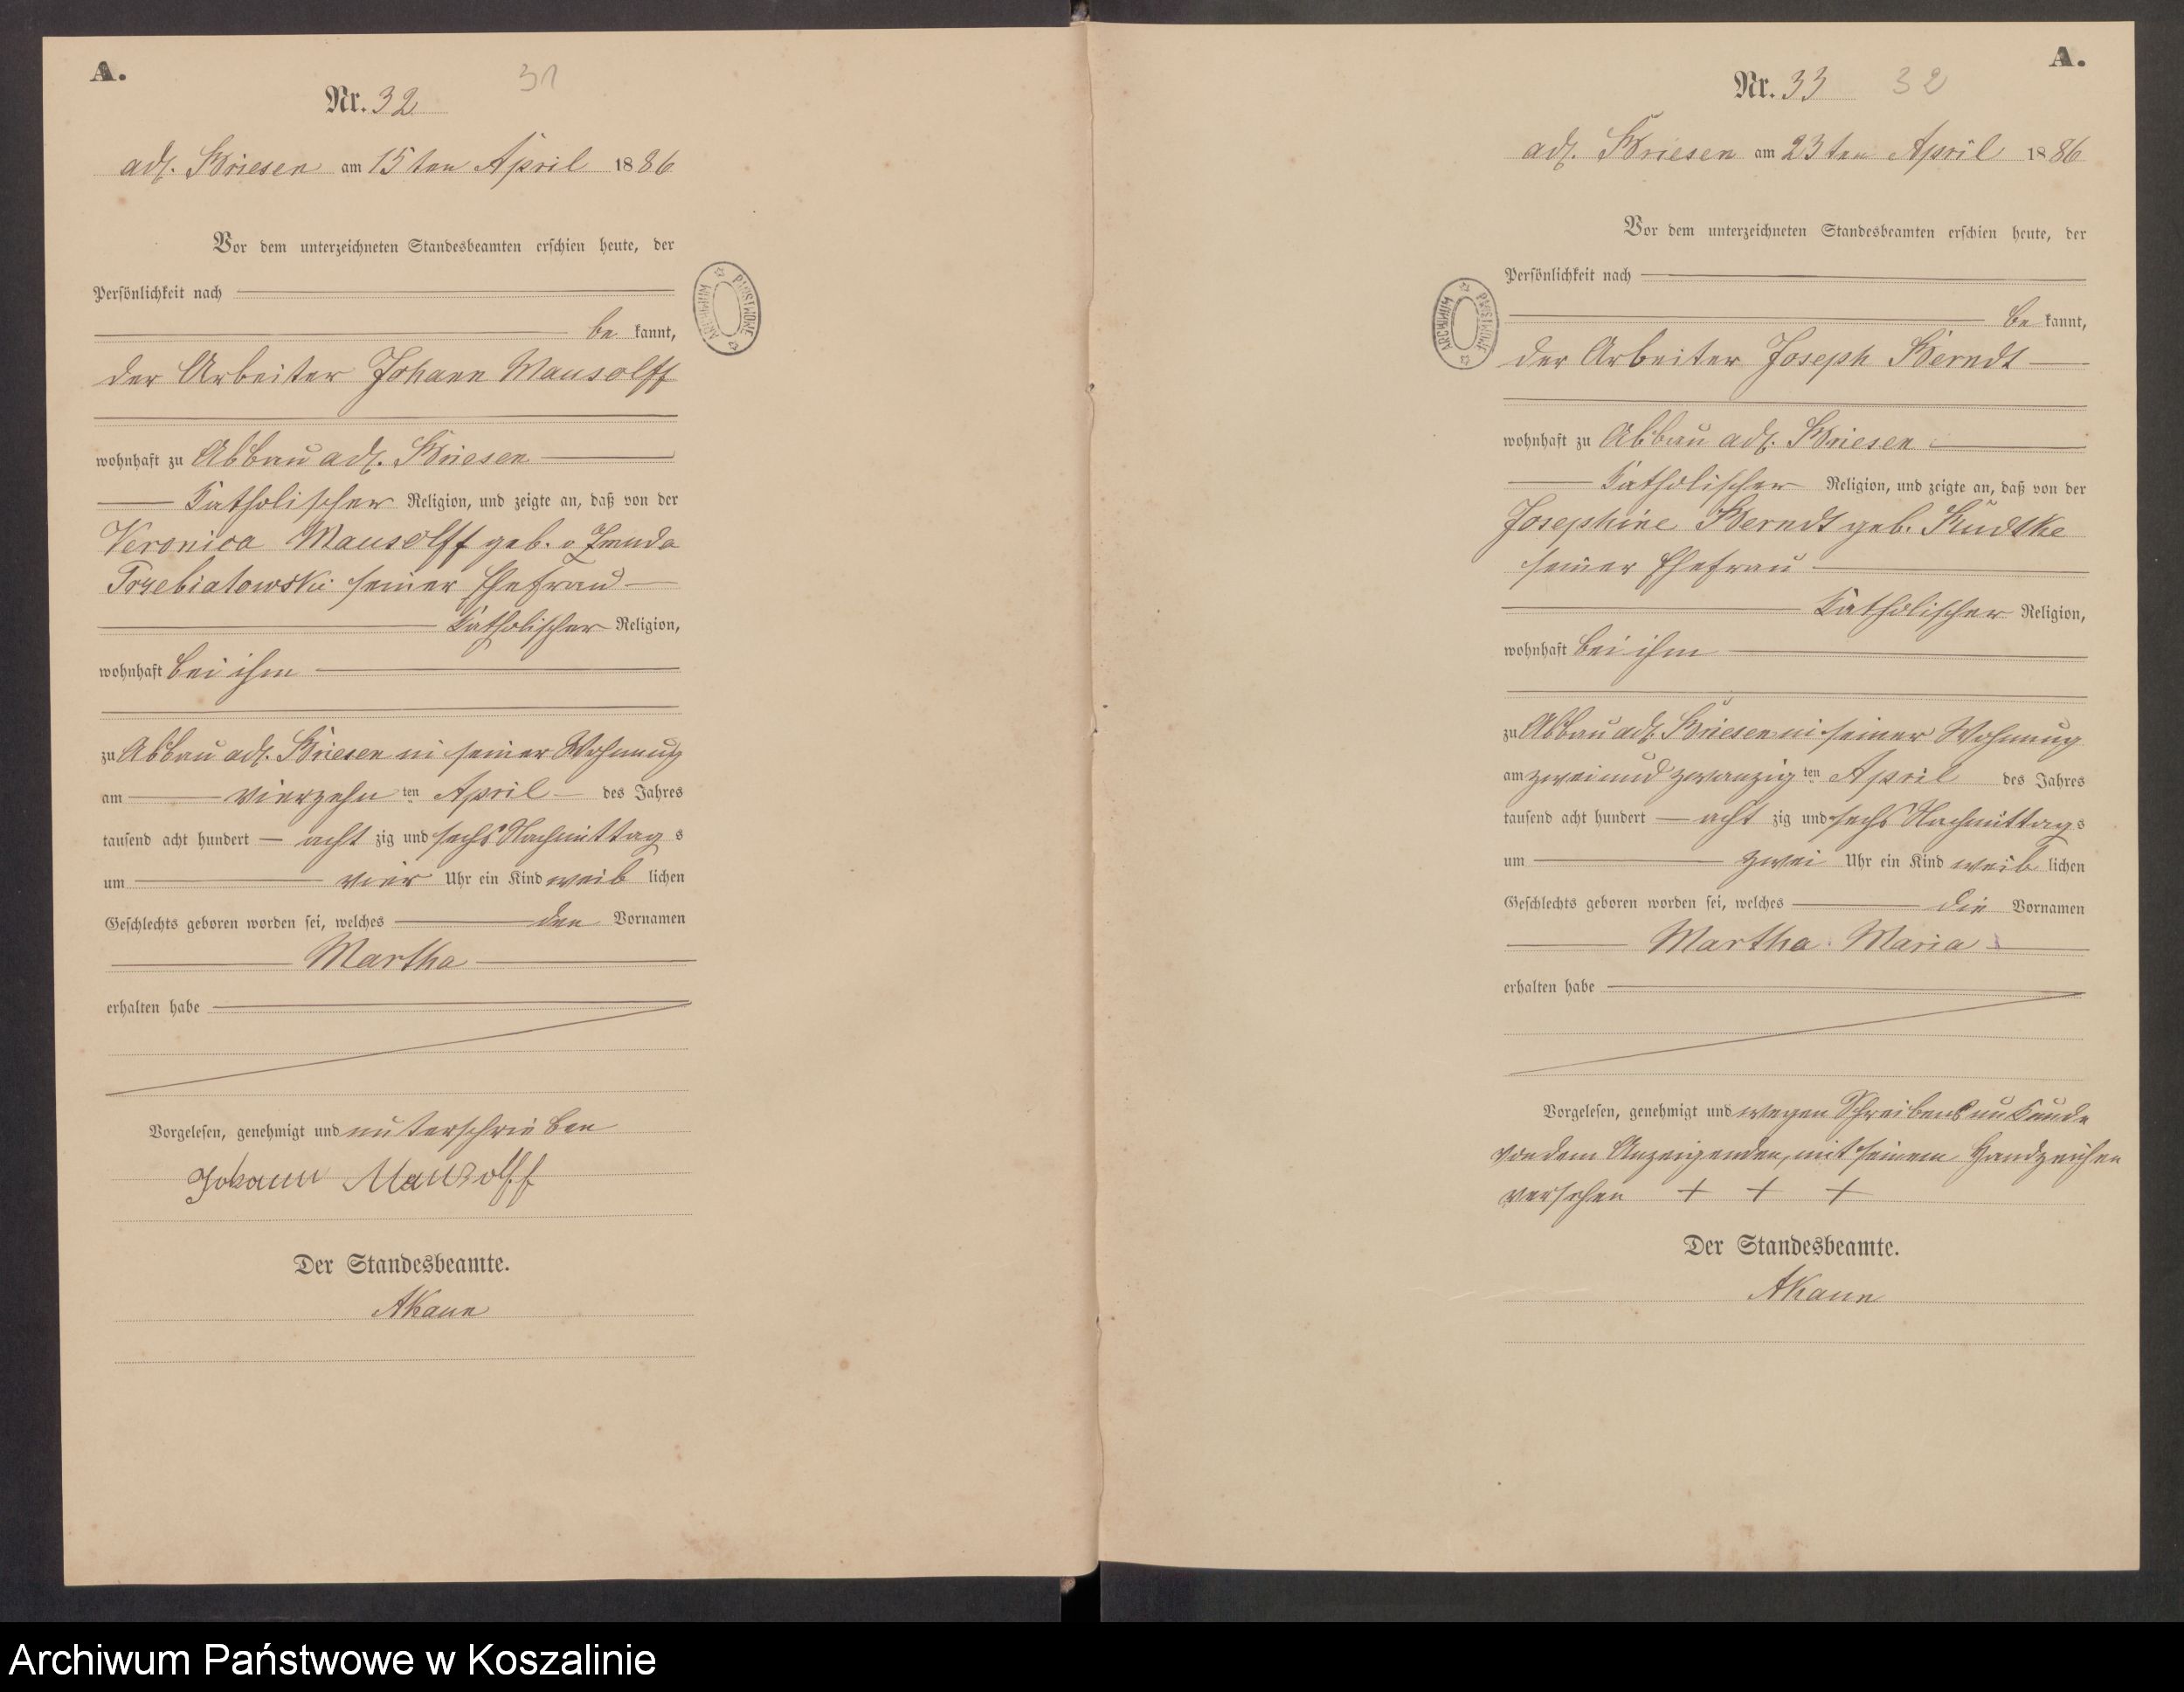 A.
Nr. 32
31
adl. Briesen am 15ten April 1886
Vor dem unterzeichneten Standesbeamten erschien heute, der
Persönlichkeit nach
be kannt,
der Arbeiter Johann Mausolff
wohnhaft zu Abbau adl. Briesen
Katholischer Religion, und zeigte an, daß von der
Veronica Mausolff geb. v Zmuda
Trzebiatowski seiner Ehefrau
Katholischer Religion,
wohnhaft bei ihm
zu Abbau adl. Briesen in seiner Wohnung
am vierzehn ten April des Jahres
tausend acht hundert acht zig und sechs Nachmittag s
um vier Uhr ein Kind weib lichen
Geschlechts geboren worden sei, welches den Vornamen
Martha
erhalten habe
Vorgelesen, genehmigt und unterschrieben
Johann Mausolff
Der Standesbeamte.
ARCHIWUM PAŃSTWOWE
A.
Nr. 33
32
adl. Briesen am 23ten April 1886
Vor dem unterzeichneten Standesbeamten erschien heute, der
Persönlichkeit nach
be kannt,
der Arbeiter Joseph Berndt
wohnhaft zu Abbau adl. Briesen
Katholischer Religion, und zeigte an, daß von der
Josephine Berndt geb. Rudtke
seiner Ehefrau
Katholischer Religion,
wohnhaft bei ihm
zu Abbau adl. Briesen in seiner Wohnung
am zweiundzwanzig ten April des Jahres
tausend acht hundert acht zig und sechs Nachmittags
um zwei Uhr ein Kind weib lichen
Geschlechts geboren worden sei, welches die Vornamen
Martha Maria
erhalten habe
Vorgelesen, genehmigt und wegen Schreibensunkunde
von dem Anzeigenden, mit seinem Handzeichen
versehen + + +
Der Standesbeamte.
ARCHIWUM PAŃSTWOWE
Archiwum Państwowe w Koszalinie